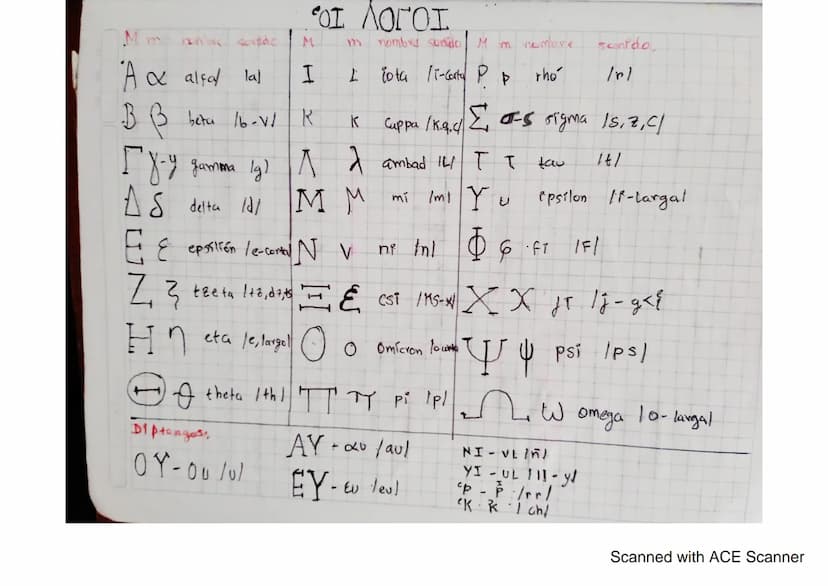 Οἱ ΛΟΓΟΙ
M m nombre sonido M m nombre sonido M m nombre sonido
Ά α alfa /a/ Ι ι iota /i-corta Ρ ρ rho /r/
Β β beta /b-v/ Κ κ cuppa /K,q,c/ Σ σ-ς sigma /s,z,c/
Γ γ-y gamma /g/ Λ λ ambad /L/ Τ τ tau /t/
Δ δ delta /d/ Μ μ mi /m/ Υ υ ipsilon /i-larga/
Ε ε /e-corta/ Ν ν ni /n/ Φ φ fi /F/
Ζ ζ Ξ ξ csi Χ χ /j-g<i
Η η eta /e,larga/ Ο ο omicron Ψ ψ psi /ps/
Θ θ theta /th/ Π π pi /p/ Ω ω omega /o-larga/
Diptongos:
ΟΥ-ου /u/ ΑΥ-αυ /au/ ΝΙ-νι /ñ/
ΕΥ-ευ /eu/ ΥΙ-υι /ll-y/
/rr/
/ch/
Scanned with ACE Scanner